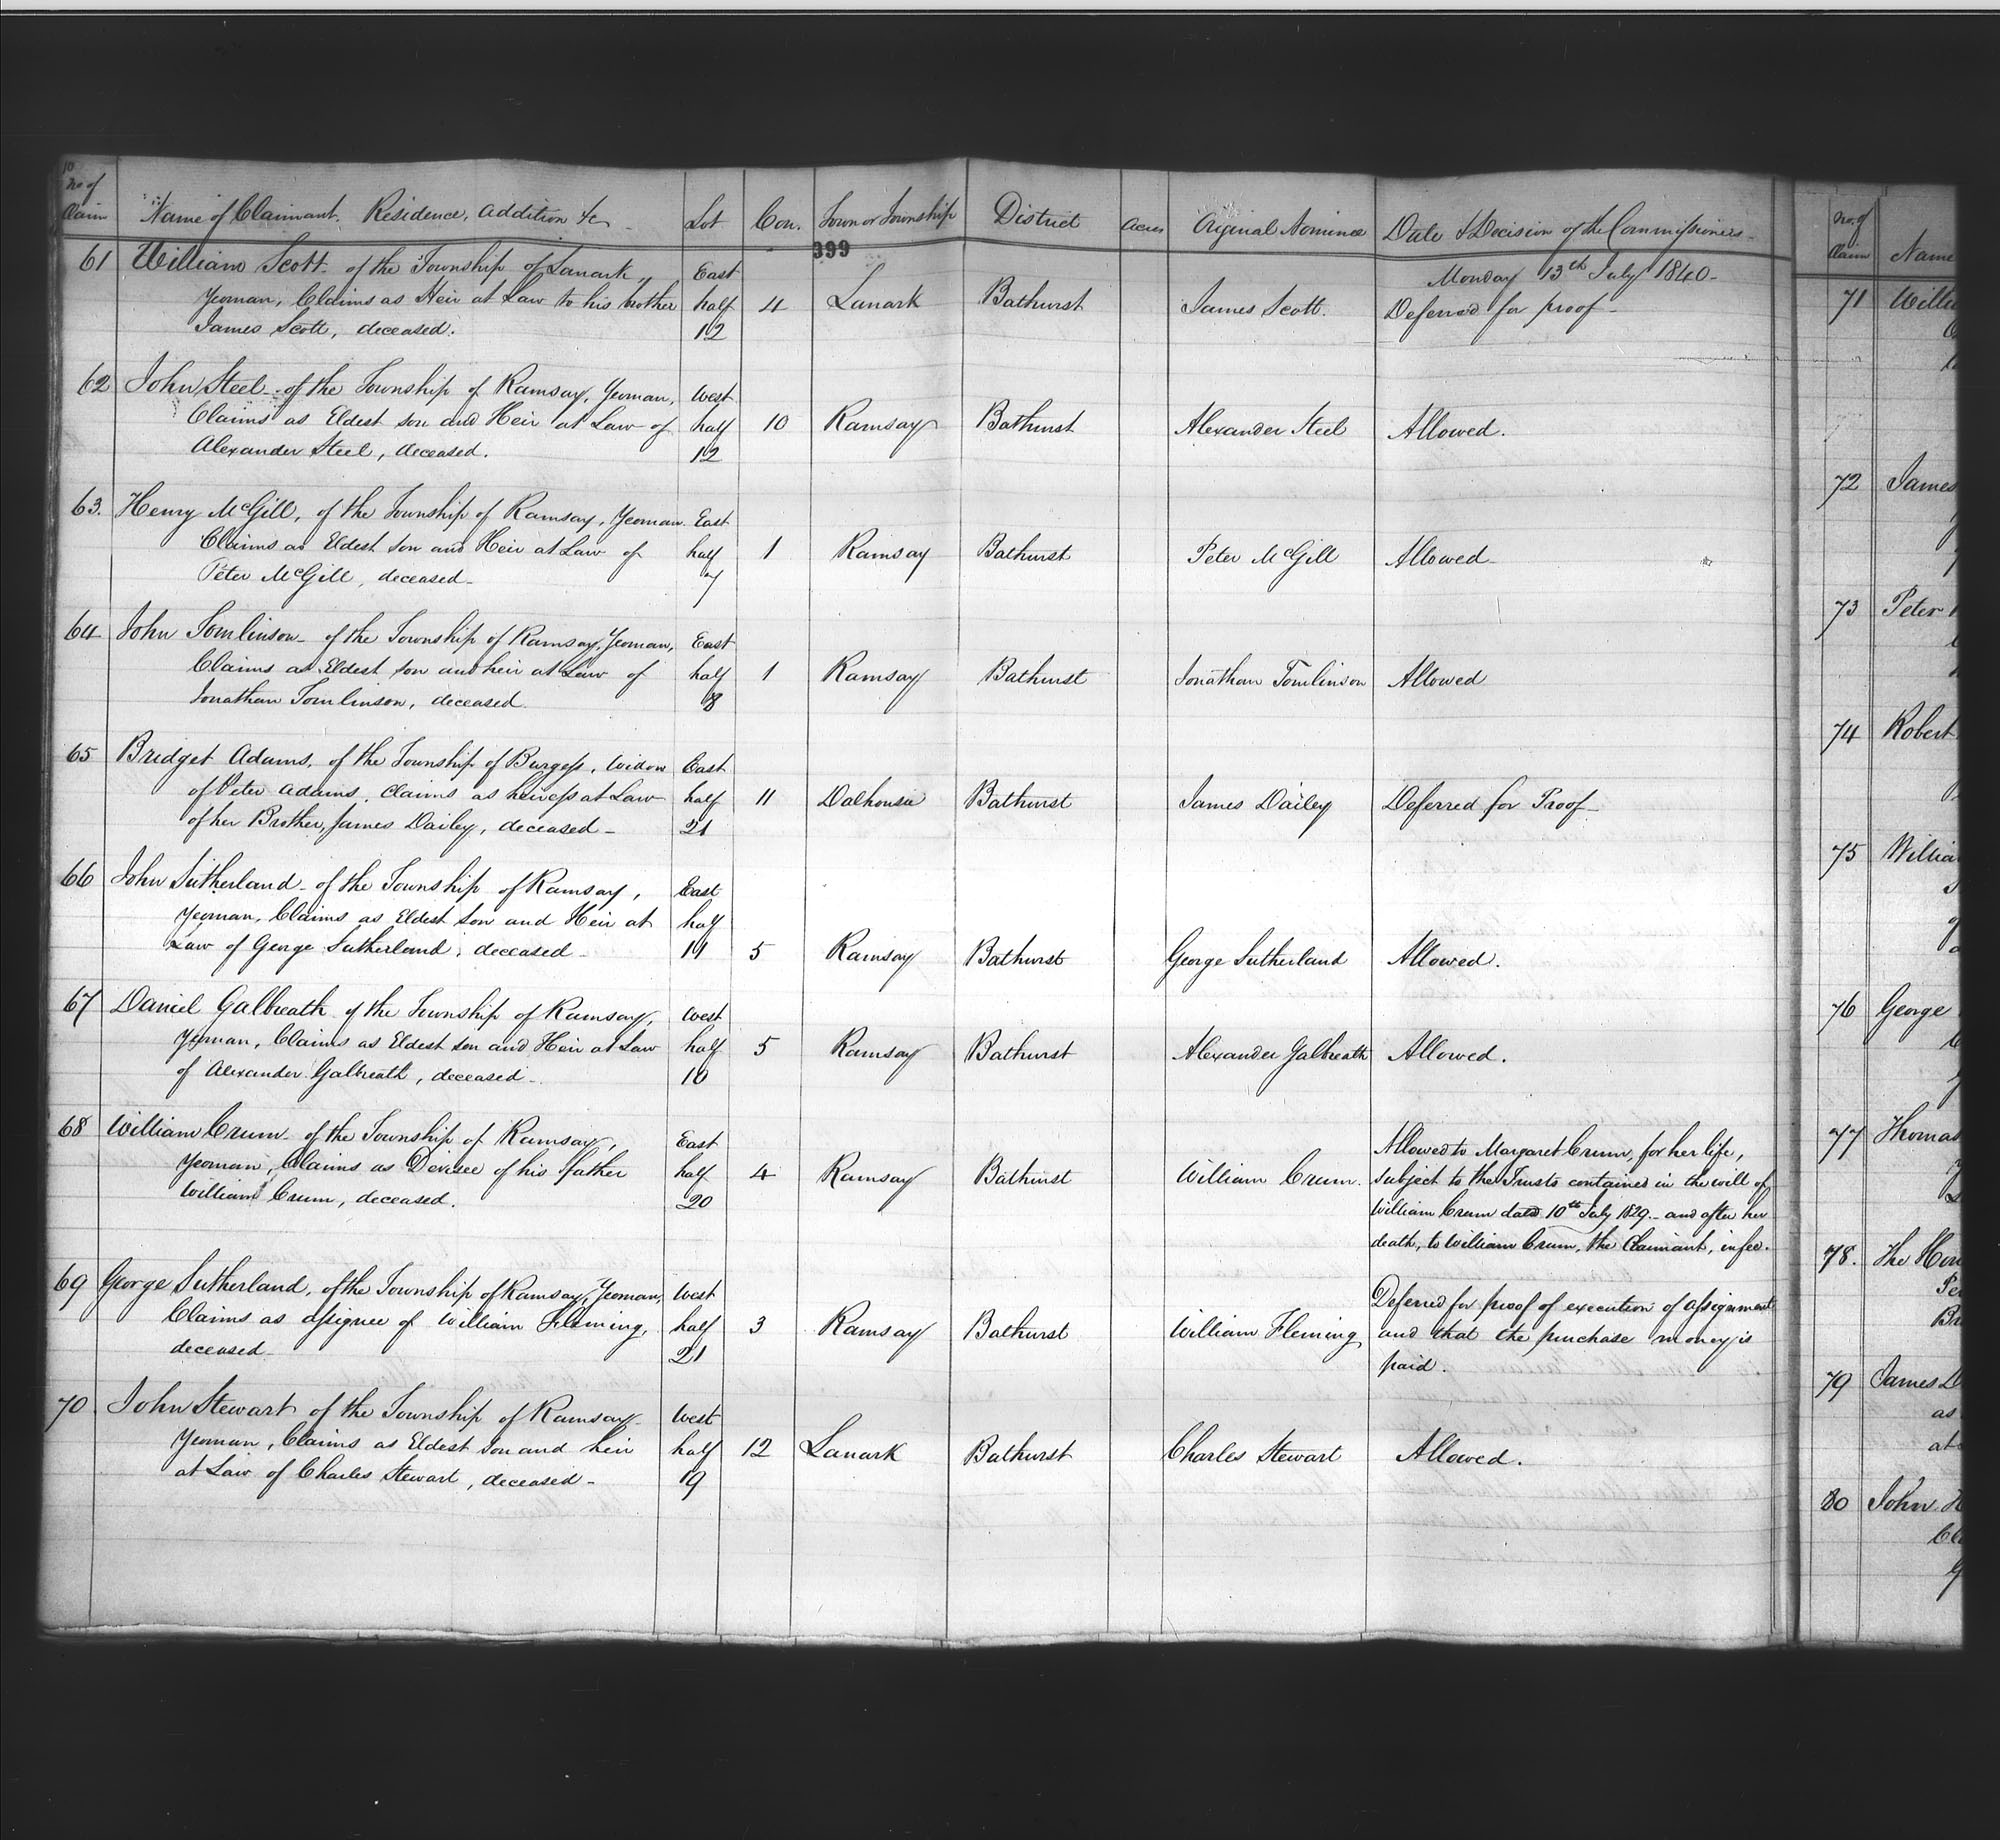 10
No of Claim | Name of Claimant. Residence, Addition &c | Lot | Con. | Town or Township | District | Acres | Original Nominee | Date & Decision of the Commissioners
399
Monday 13th July 1840
61 William Scott of the Township of Lanark, | East
Yeoman, Claims as Heir at Law to his brother | half | 4 | Lanark | Bathurst | James Scott. | Deferred for proof
James Scott, deceased. | 12
62 John Steel of the Township of Ramsay, Yeoman, | West
Claims as Eldest son and Heir at Law of | half | 10 | Ramsay | Bathurst | Alexander Steel | Allowed.
Alexander Steel, deceased. | 12
63. Henry McGill, of the Township of Ramsay, Yeoman. | East
Claims as Eldest son and Heir at Law of | half | 1 | Ramsay | Bathurst | Peter McGill | Allowed
Peter McGill, deceased | 7
64 John Tomlinson of the Township of Ramsay, Yeoman, | East
Claims as Eldest son and heir at Law of | half | 1 | Ramsay | Bathurst | Jonathan Tomlinson | Allowed
Jonathan Tomlinson, deceased. | 8
65 Bridget Adams, of the Township of Burgess, Widow | East
of Peter Adams, Claims as heiress at Law | half | 11 | Dalhousie | Bathurst | James Dailey | Deferred for Proof
of her Brother, James Dailey, deceased | 21
66 John Sutherland of the Township of Ramsay, | East
Yeoman, Claims as Eldest son and Heir at | half
Law of George Sutherland, deceased | 11 | 5 | Ramsay | Bathurst | George Sutherland | Allowed.
67 Daniel Galbreath of the Township of Ramsay, | West
Yeoman, Claims as Eldest son and Heir at Law | half | 5 | Ramsay | Bathurst | Alexander Galbreath | Allowed.
of Alexander Galbreath, deceased | 10
68 William Crum of the Township of Ramsay, | East | Allowed to Margaret Crum, for her life,
Yeoman, Claims as Devisee of his father | half | 4 | Ramsay | Bathurst | William Crum. | subject to the Trusts contained in the will of
William Crum, deceased. | 20 | William Crum dated 10th July 1829. and after her
death, to William Crum, the Claimant, in fee.
69 George Sutherland, of the Township of Ramsay, Yeoman, | West | Deferred for proof of execution of assignment
Claims as assignee of William Fleming, | half | 3 | Ramsay | Bathurst | William Fleming | and that the purchase money is
deceased | 21 | paid.
70. John Stewart of the Township of Ramsay | West
Yeoman, Claims as Eldest son and heir | half | 12 | Lanark | Bathurst | Charles Stewart | Allowed.
at Law of Charles Stewart, deceased | 19
No. of Claim | Name
71
72 James
73 Peter
74 Robert
75
76 George
77 Thomas
78. The Hon
79 James D
as
at
80 John H